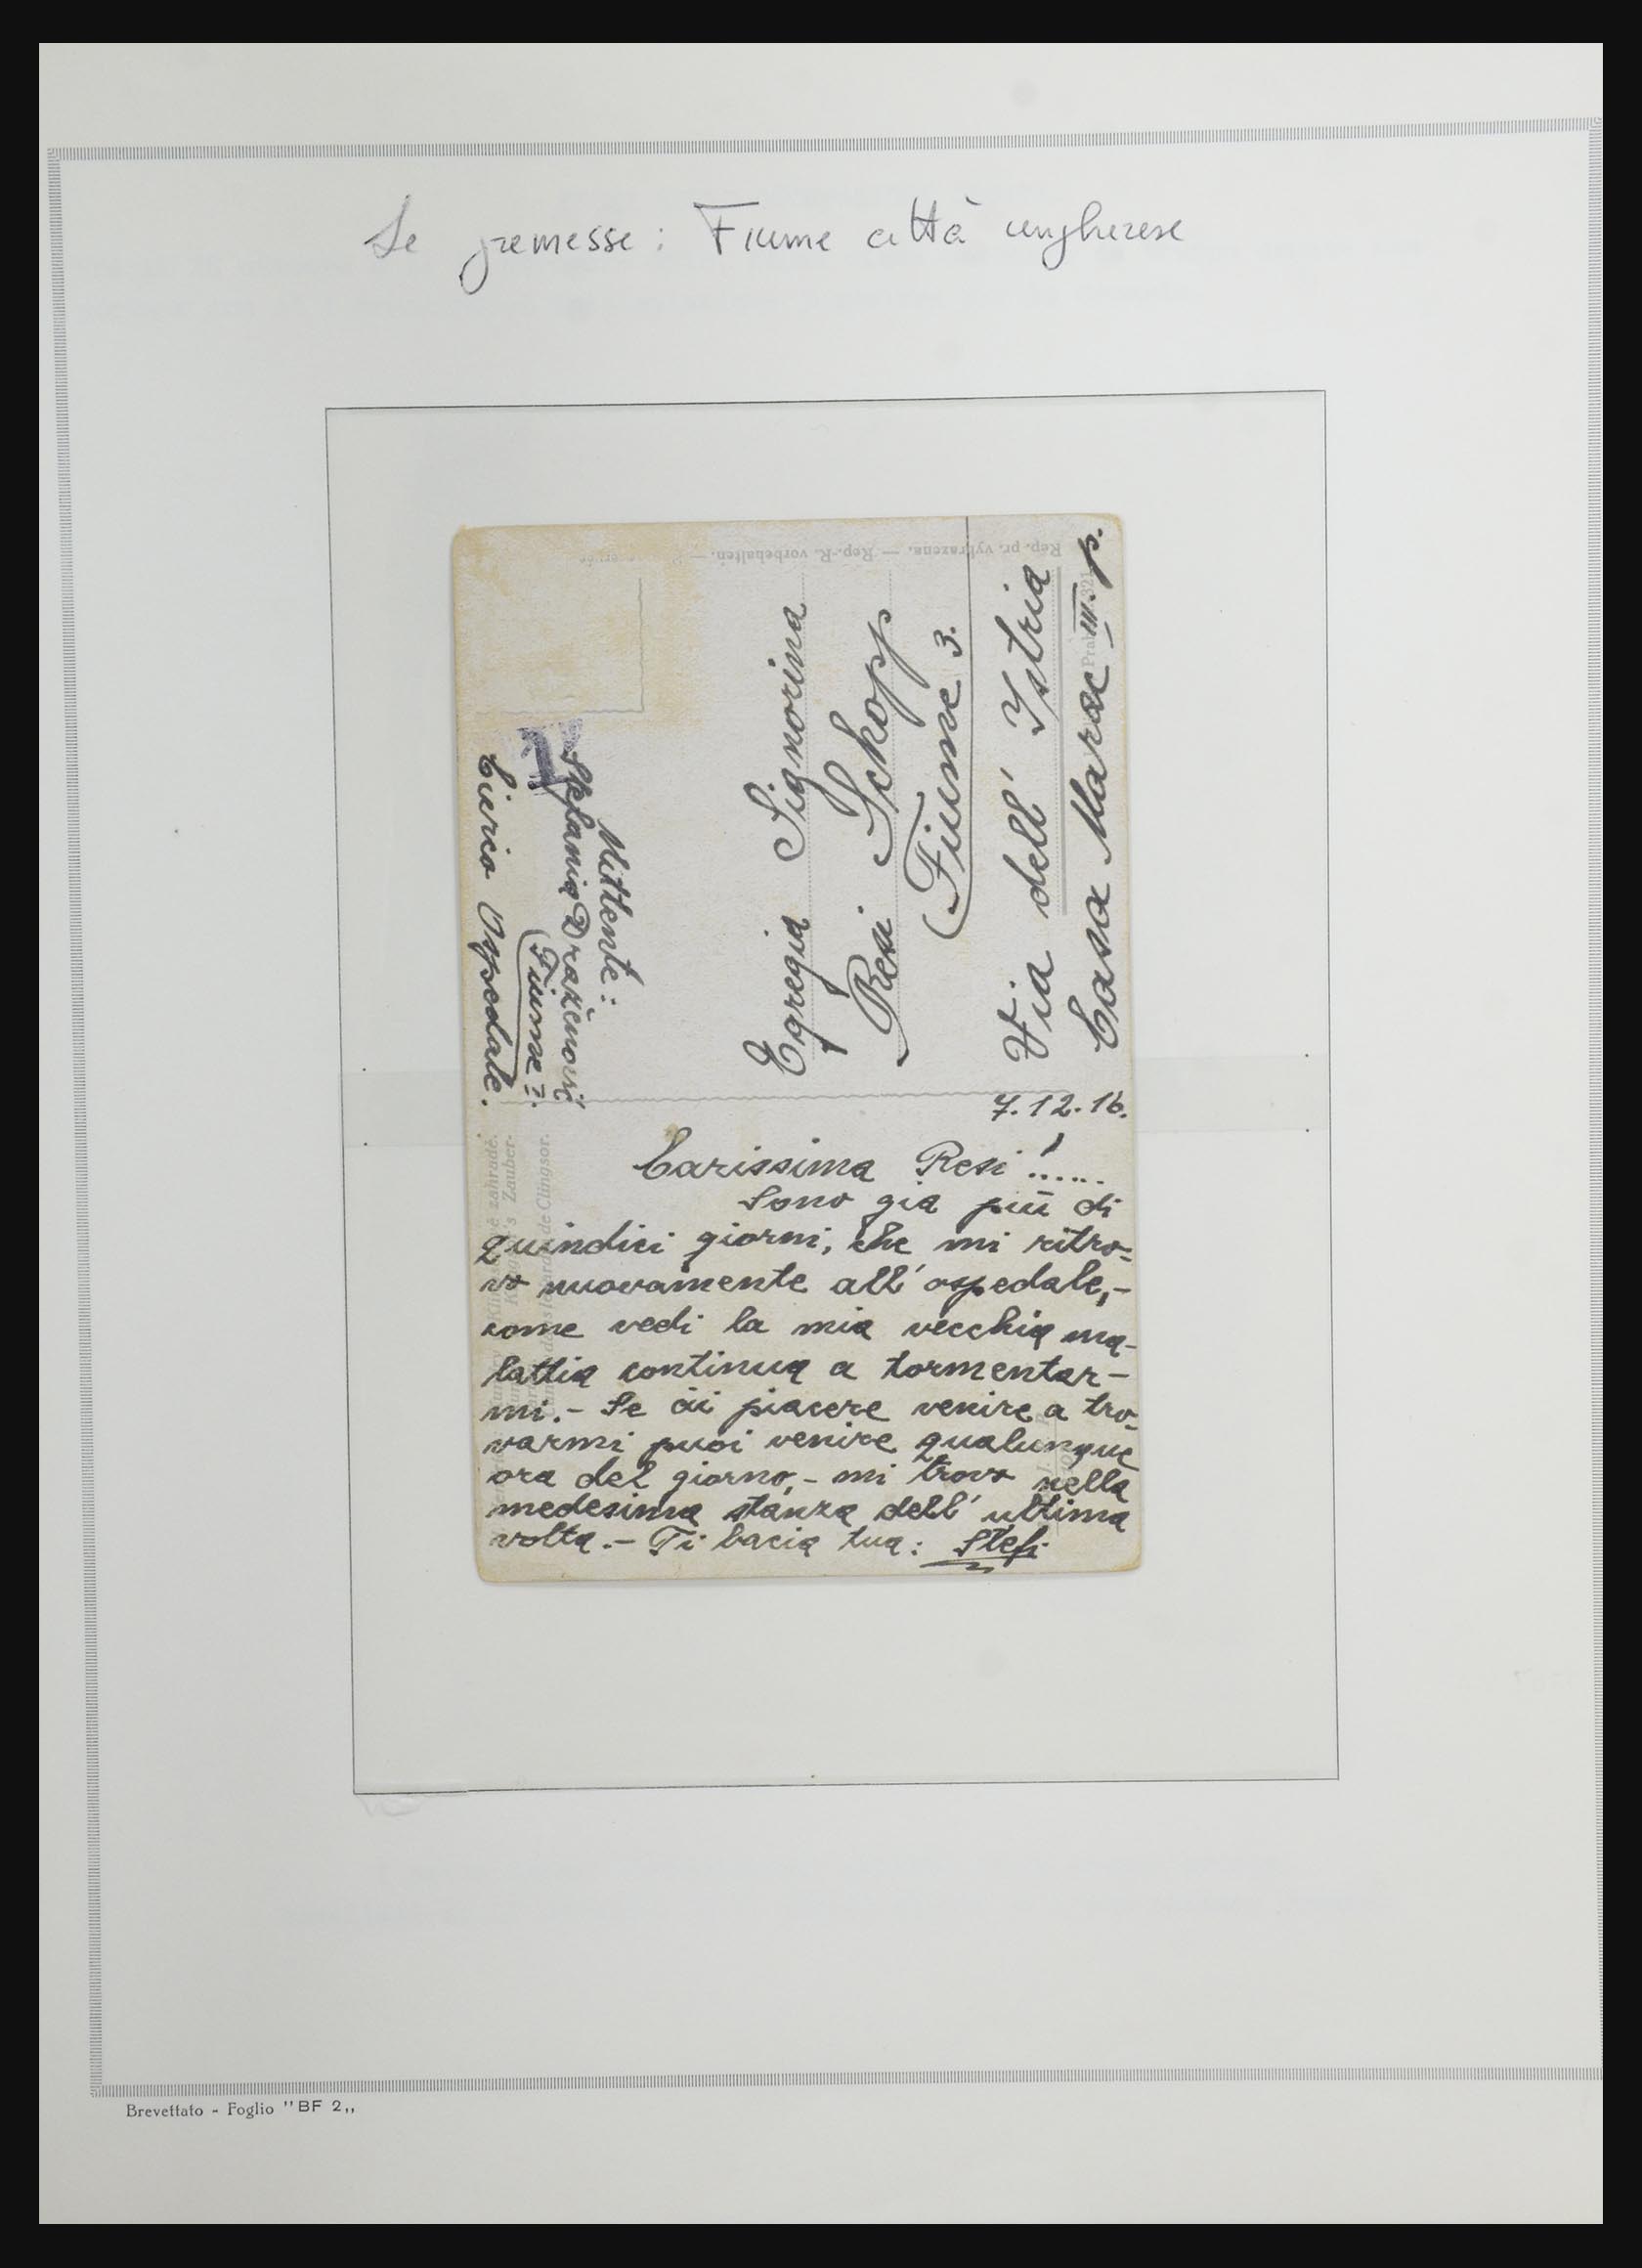 Le premesse: Fiume città ungherese
Rep. pr. vyhrazena. — Rep.-R. vorbehalten. —
Mittente:
Stefania Draženović
Fiume
Civico Ospedale.
Egregia Signorina
Resi Schopp
Fiume 3.
Via dell' Istria
Casa Marac III. p.
7.12.16.
Carissima Resi!.....
Sono gia più di
quindici giorni, che mi ritro=
vo nuovamente all' ospedale,-
come vedi la mia vecchia ma-
lattia continua a tormentar-
mi.- Se ài piacere venire a tro=
varmi puoi venire qualunque
ora del giorno,- mi trovo nella
medesima stanza dell' ultima
volta.- Ti bacia tua: Stefi
zahradě.
Zauber-
de Clingsor.
Brevettato - Foglio "BF 2„